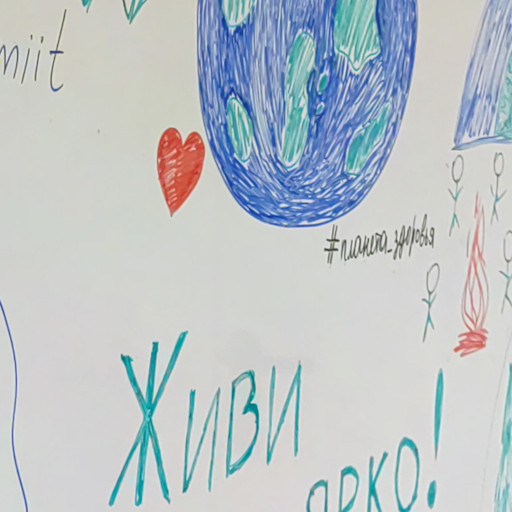 miit
#планета_здоровья
Живи
ярко!